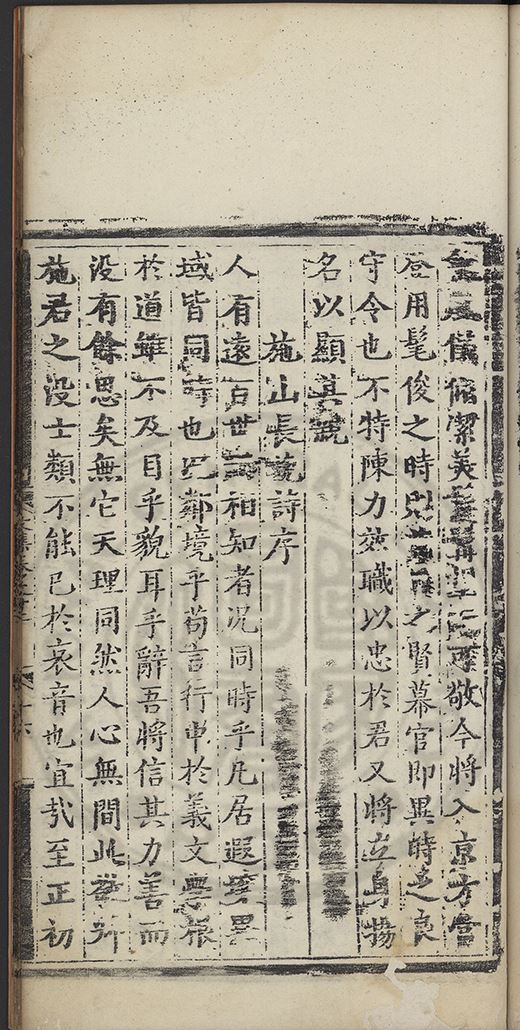 儀脩潔美可敬今將入京方當
登用髦俊之時之賢幕官即異時之良
守令也不特陳力效職以忠於君又將立身揚
名以顯其親
施山長挽詩序
人有遠百世而相知者况同時乎凡居遐壤異
域皆同時也况鄰境乎苟言行中於義文學根
於道雖不及目乎貌耳乎辭吾將信其力善而
没有餘思矣無它天理同然人心無間此挽所
施君之没士類不能已於哀音也宜哉至正初